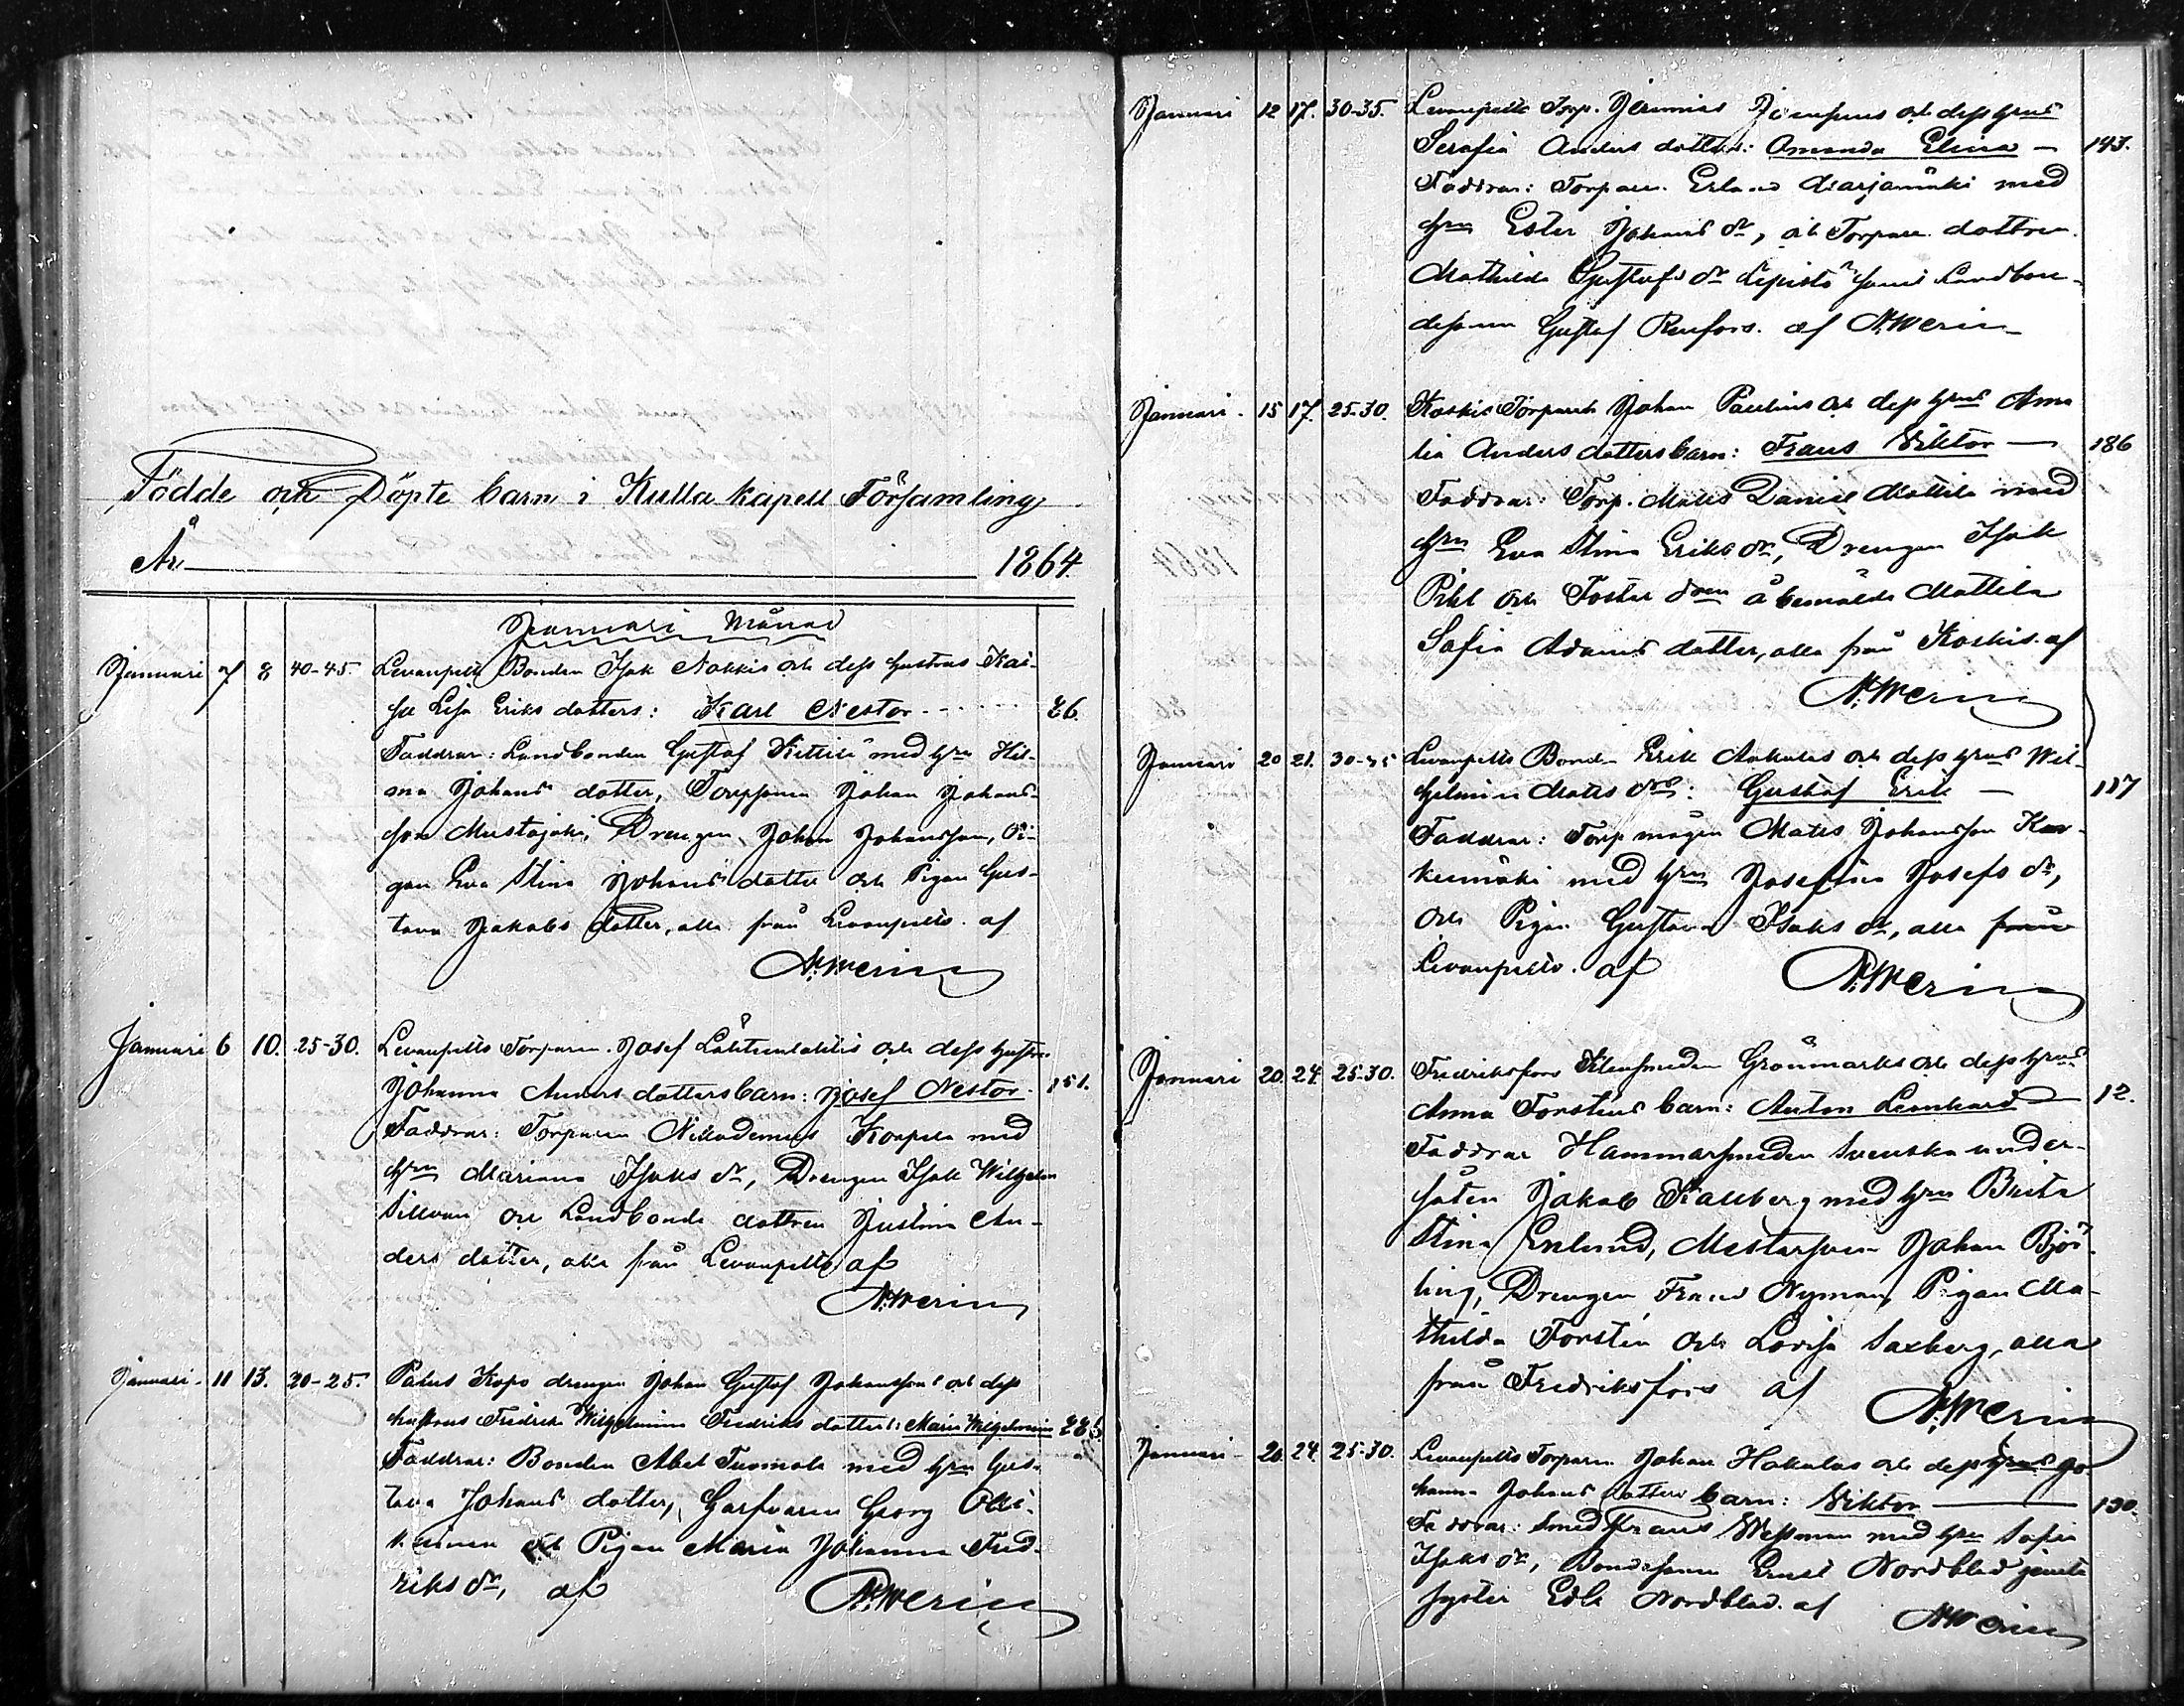 Födde och Döpte barn i Kulla kapell Församling
År 1864.
Januari Månad
Januari 7 8 40-45. Levanpelto Bonden Isak Nokkis och dess hustrus Kai-
sa Lisa Eriks dotters: Karl Nestor 26.
Faddrar: Landbonden Gustaf Kittilä med hru Hil-
ma Johans dotter, Torpsonen Johan Johans-
son Mustajoki, Drengen Johan Johansson, Pi-
gan Eva Stina Johans dotter och Pigan Gus-
tava Jakobs dotter, alla från Levanpelto. af
N. Merin
Januari 6 10. 25-30. Levanpelto Torparen Josef Lähteenlahtis och dess hustrus
Johanna Anders dotters barn: Josef Nestor. 151.
Faddrar: Torparen Nikodemus Korpela med
hru Mariana Isaks dr, Drengen Isak Wilhelm
Sillvan och Landbonde dottren Justina An-
ders dotter, alla från Levanpelto af
N. Merin
Januari 11 13. 20-25. Palus Kopo drengen Johan Gustaf Johanssons och dess
hustrus Fredrika Wilhelmina Fredriks dotters: Maria Wilhelmina
Faddrar: Bonden Abel Tuomola med hru Gus-
tava Johans dotter, Garfvaren Georg
och Pigan Maria Johanna Fred-
riks dr, af N. Merin
Januari 12 17. 30-35. Levanpelto Torp. Jeremias och dess hrus
Serafia Anders dotters: Amanda Elina 143.
Faddrar: Torparen Erland Harjamäki med
hru Ester Johans dr, och Torpare dottren
Mathilda Gustafs dr Lepistö samt Landbon-
desonen Gustaf Renfors. af N. Merin
Januari 15 17. 25-30. Koskis Torparen Johan Paulins och dess hrus Ama
lia Anders dotters barn: Frans Viktor 186
Faddrar: Torp. Matts Daniel Mattila med
hru Eva Stina Eriks dr, Drengen Isak
Pihl och Foster dren å bemälde Mattila
Sofia Adams dotter, alla från Koskis. af
N. Merin
Januari 20 21. 30-35 Levanpelto Bonden Erik Ankulas och dess hrus Wil-
helmina Matts drs: Gustaf Erik 187
Faddrar: Torp mågen Matts Johansson Kor-
keemäki med hru Josefina Josefs dr,
och Pigan Gustava Isaks dr, alla från
Levanpelto. af N. Merin
Januari 20. 24. 25-30. Fredriksfors Grönmarks och dess hrus
Anna Forstens barn: Anton Leonhard 12.
Faddrar Hammarsmeden Svenska under-
såten Jakob Kallberg med hru Brita
Stina Enlund, Mestarsven Johan Björ-
ling, Drengen Frans Nyman, Pigan Ma-
thilda Forstén och Lovisa Saxberg, alla
från Fredriksfors af N. Merin
Januari 20. 24. 25-30. Levanpelto Torparen Johan Hakalas och dess hrus Jo-
hanna Johans dotters barn: Viktor 130.
Faddrar: Smed Frans Wessman med hru Sofia
Isaks dr, Bondesonen Ernst Nordblad jemte
syster Edla Nordblad. af N. Merin